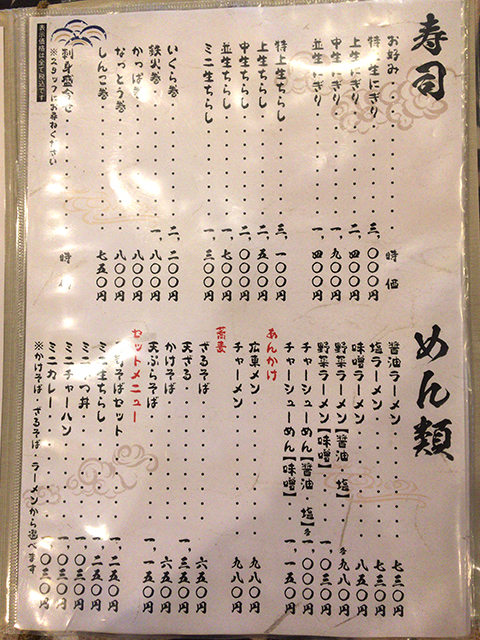 寿司
お好み 時価
特上生にぎり 三、〇〇〇円
上生にぎり 二、四〇〇円
中生にぎり 一、九〇〇円
並生にぎり 一、四〇〇円
特上生ちらし 三、一〇〇円
上生ちらし 二、五〇〇円
中生ちらし 二、〇〇〇円
並生ちらし 一、七〇〇円
ミニ生ちらし 一、三〇〇円
いくら巻 二、二〇〇円
鉄火巻 一、八〇〇円
かっぱ巻 八〇〇円
なっとう巻 八〇〇円
しんこ巻 七五〇円
刺身盛合せ 時
※スタッフにお尋ねください
表示価格は全て税込です
めん類
醤油ラーメン 七三〇円
塩ラーメン 七三〇円
味噌ラーメン 八五〇円
野菜ラーメン【醤油・塩】 各九八〇円
野菜ラーメン【味噌】 一、〇三〇円
チャーシューめん【醤油・塩】 各一、〇〇〇円
チャーシューめん【味噌】 一、一五〇円
あんかけ
広東メン 九八〇円
チャーメン 九八〇円
蕎麦
ざるそば 六五〇円
天ざる 一、三五〇円
かけそば 六五〇円
天ぷらそば 一、一五〇円
セットメニュー
そばセット 一、二五〇円
ミニ生ちらし 一、二五〇円
ミニ つ丼 一、〇五〇円
ミニチャーハン 一、〇五〇円
ミニカレー 一、〇五〇円
※かけそば・ざるそば・ラーメンから選べます